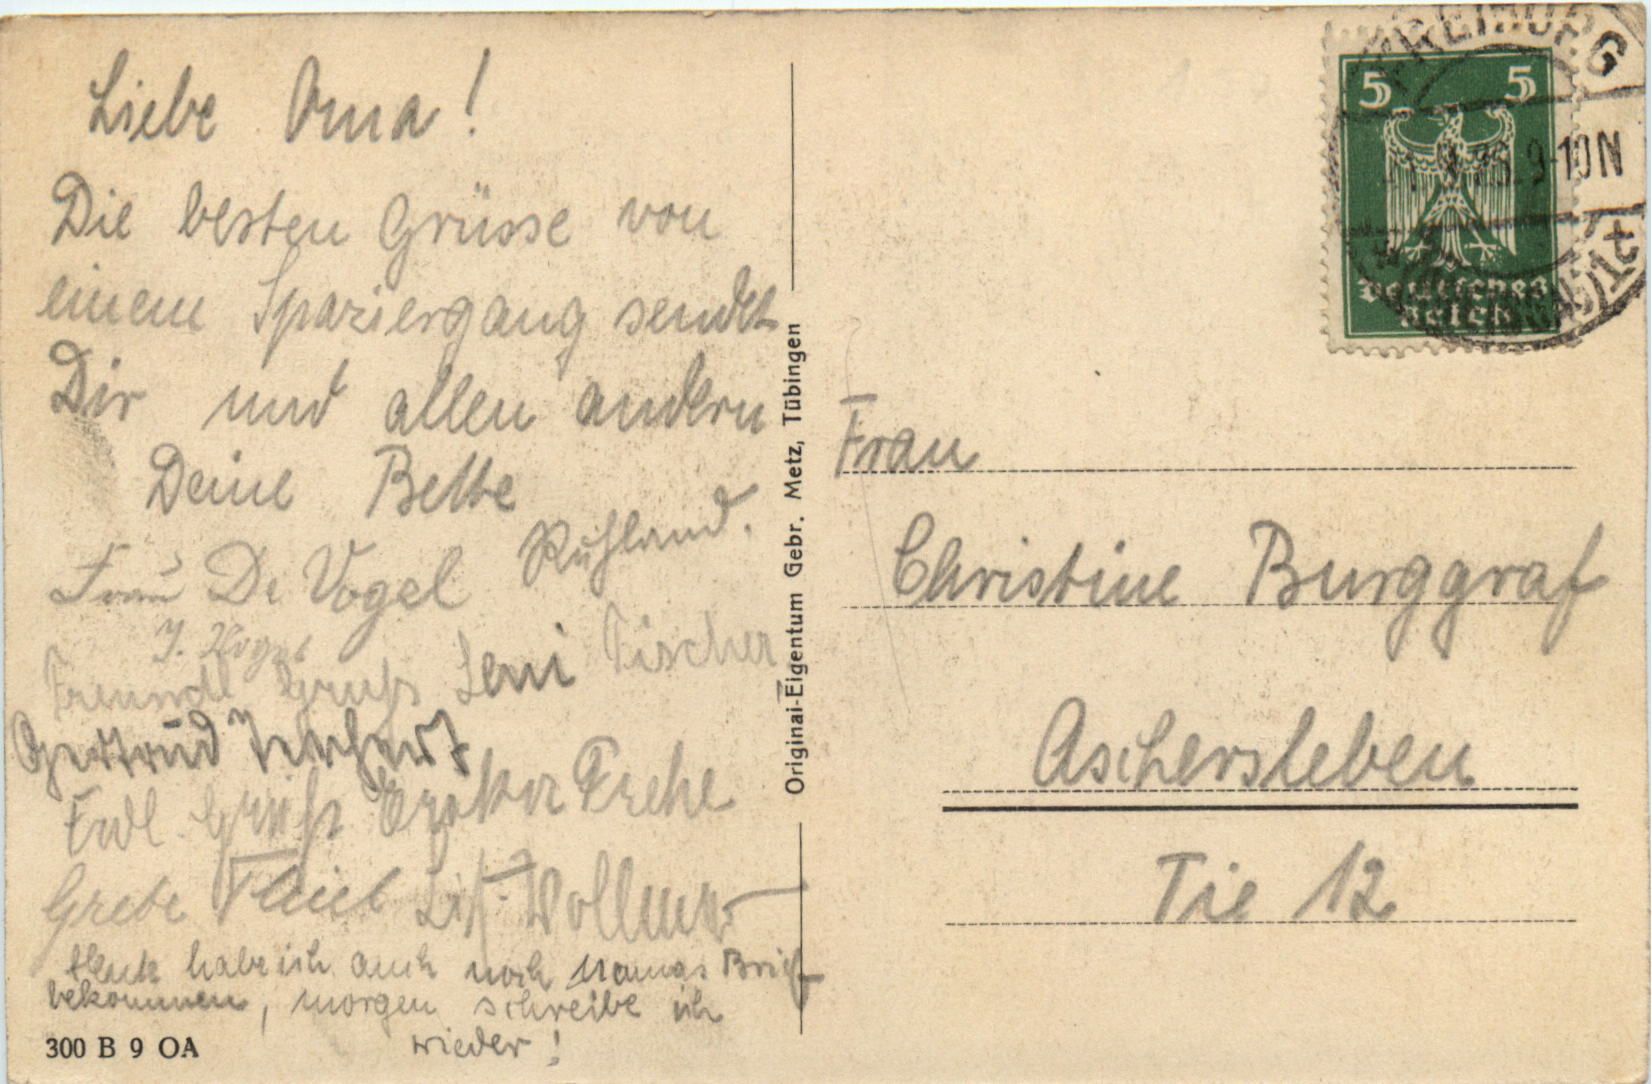 Liebe Oma!
Die besten Grüsse von
einem Spaziergang sendet
Dir und allen andern
Deine Bette
Ruhland.
Frau Dr Vogel
J. Vogel
Freundl Gruß Leni Fischer
Gertrud
Frdl. Gruß
Grete Lis Vollmer
Heute habe ich auch noch Mamas Brief
bekommen, morgen schreibe ich
wieder!
300 B 9 OA
Original-Eigentum Gebr. Metz, Tübingen
FREIBURG
9-10N
5 5
Deutsches
Reich
Frau
Christine Burggraf
Aschersleben
Tie 12